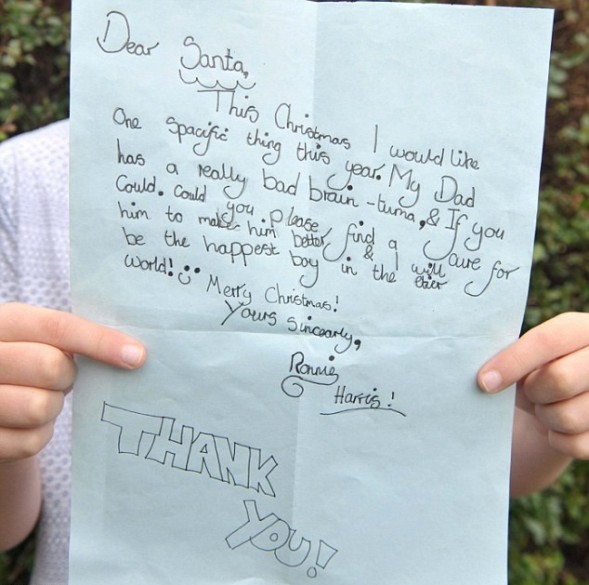 Dear Santa,
This Christmas I would like
One Spacific thing this year. My Dad
has a really bad brain-tuma, & If you
Could. Could you please find a cure for
him to make him better & I will
be the happest boy in the ever
World! Merry Christmas!
Yours Sincearly,
Ronnie
Harris!
THANK
YOU!